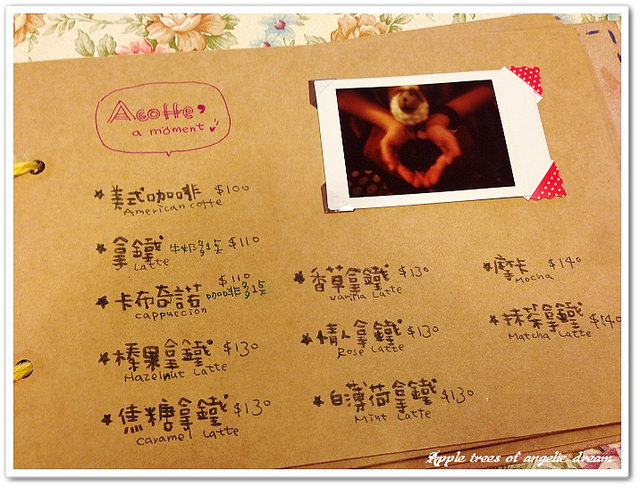 Acoffe,
a moment
★美式咖啡 $100
American coffe
★拿鐵 牛奶多1点 $110
Latte
★卡布奇諾 $110
咖啡多1点
cappuccion
★榛果拿鐵 $130
Hazelnut Latte
★焦糖拿鐵 $130
Caramel Latte
★香草拿鐵 $130
Vanilla Latte
★情人拿鐵 $130
Rose Latte
★白薄荷拿鐵 $130
Mint Latte
★摩卡 $140
Mocha
★抹茶拿鐵 $140
Matcha Latte
Apple trees of angelie dream